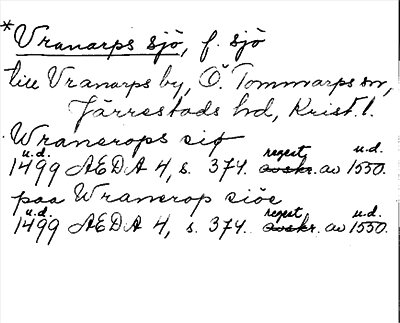 *Vranarps sjö, f. sjö
till Vranarps by, Ö. Tommarps sn,
Järrestads hd, Krist. l.
Wranerops siø
u.d. regest u.d.
1499 AEDA 4, s. 374. avskr. av 1550.
paa Wranerop siöe
u.d. regest u.d.
1499 AEDA 4, s. 374. avskr. av 1550.